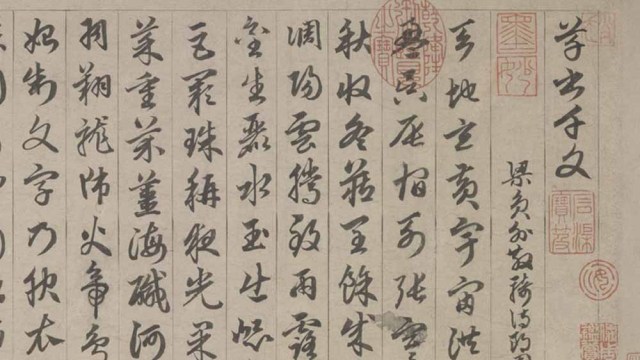 草書千文
梁員外散騎侍郎周
天地玄黃宇宙洪
盈昃辰宿列張寒
秋收冬藏閏餘成
調陽雲騰致雨露
金生麗水玉出崑
巨闕珠稱夜光菓
菜重芥薑海鹹河
羽翔龍師火帝鳥
始制文字乃服衣